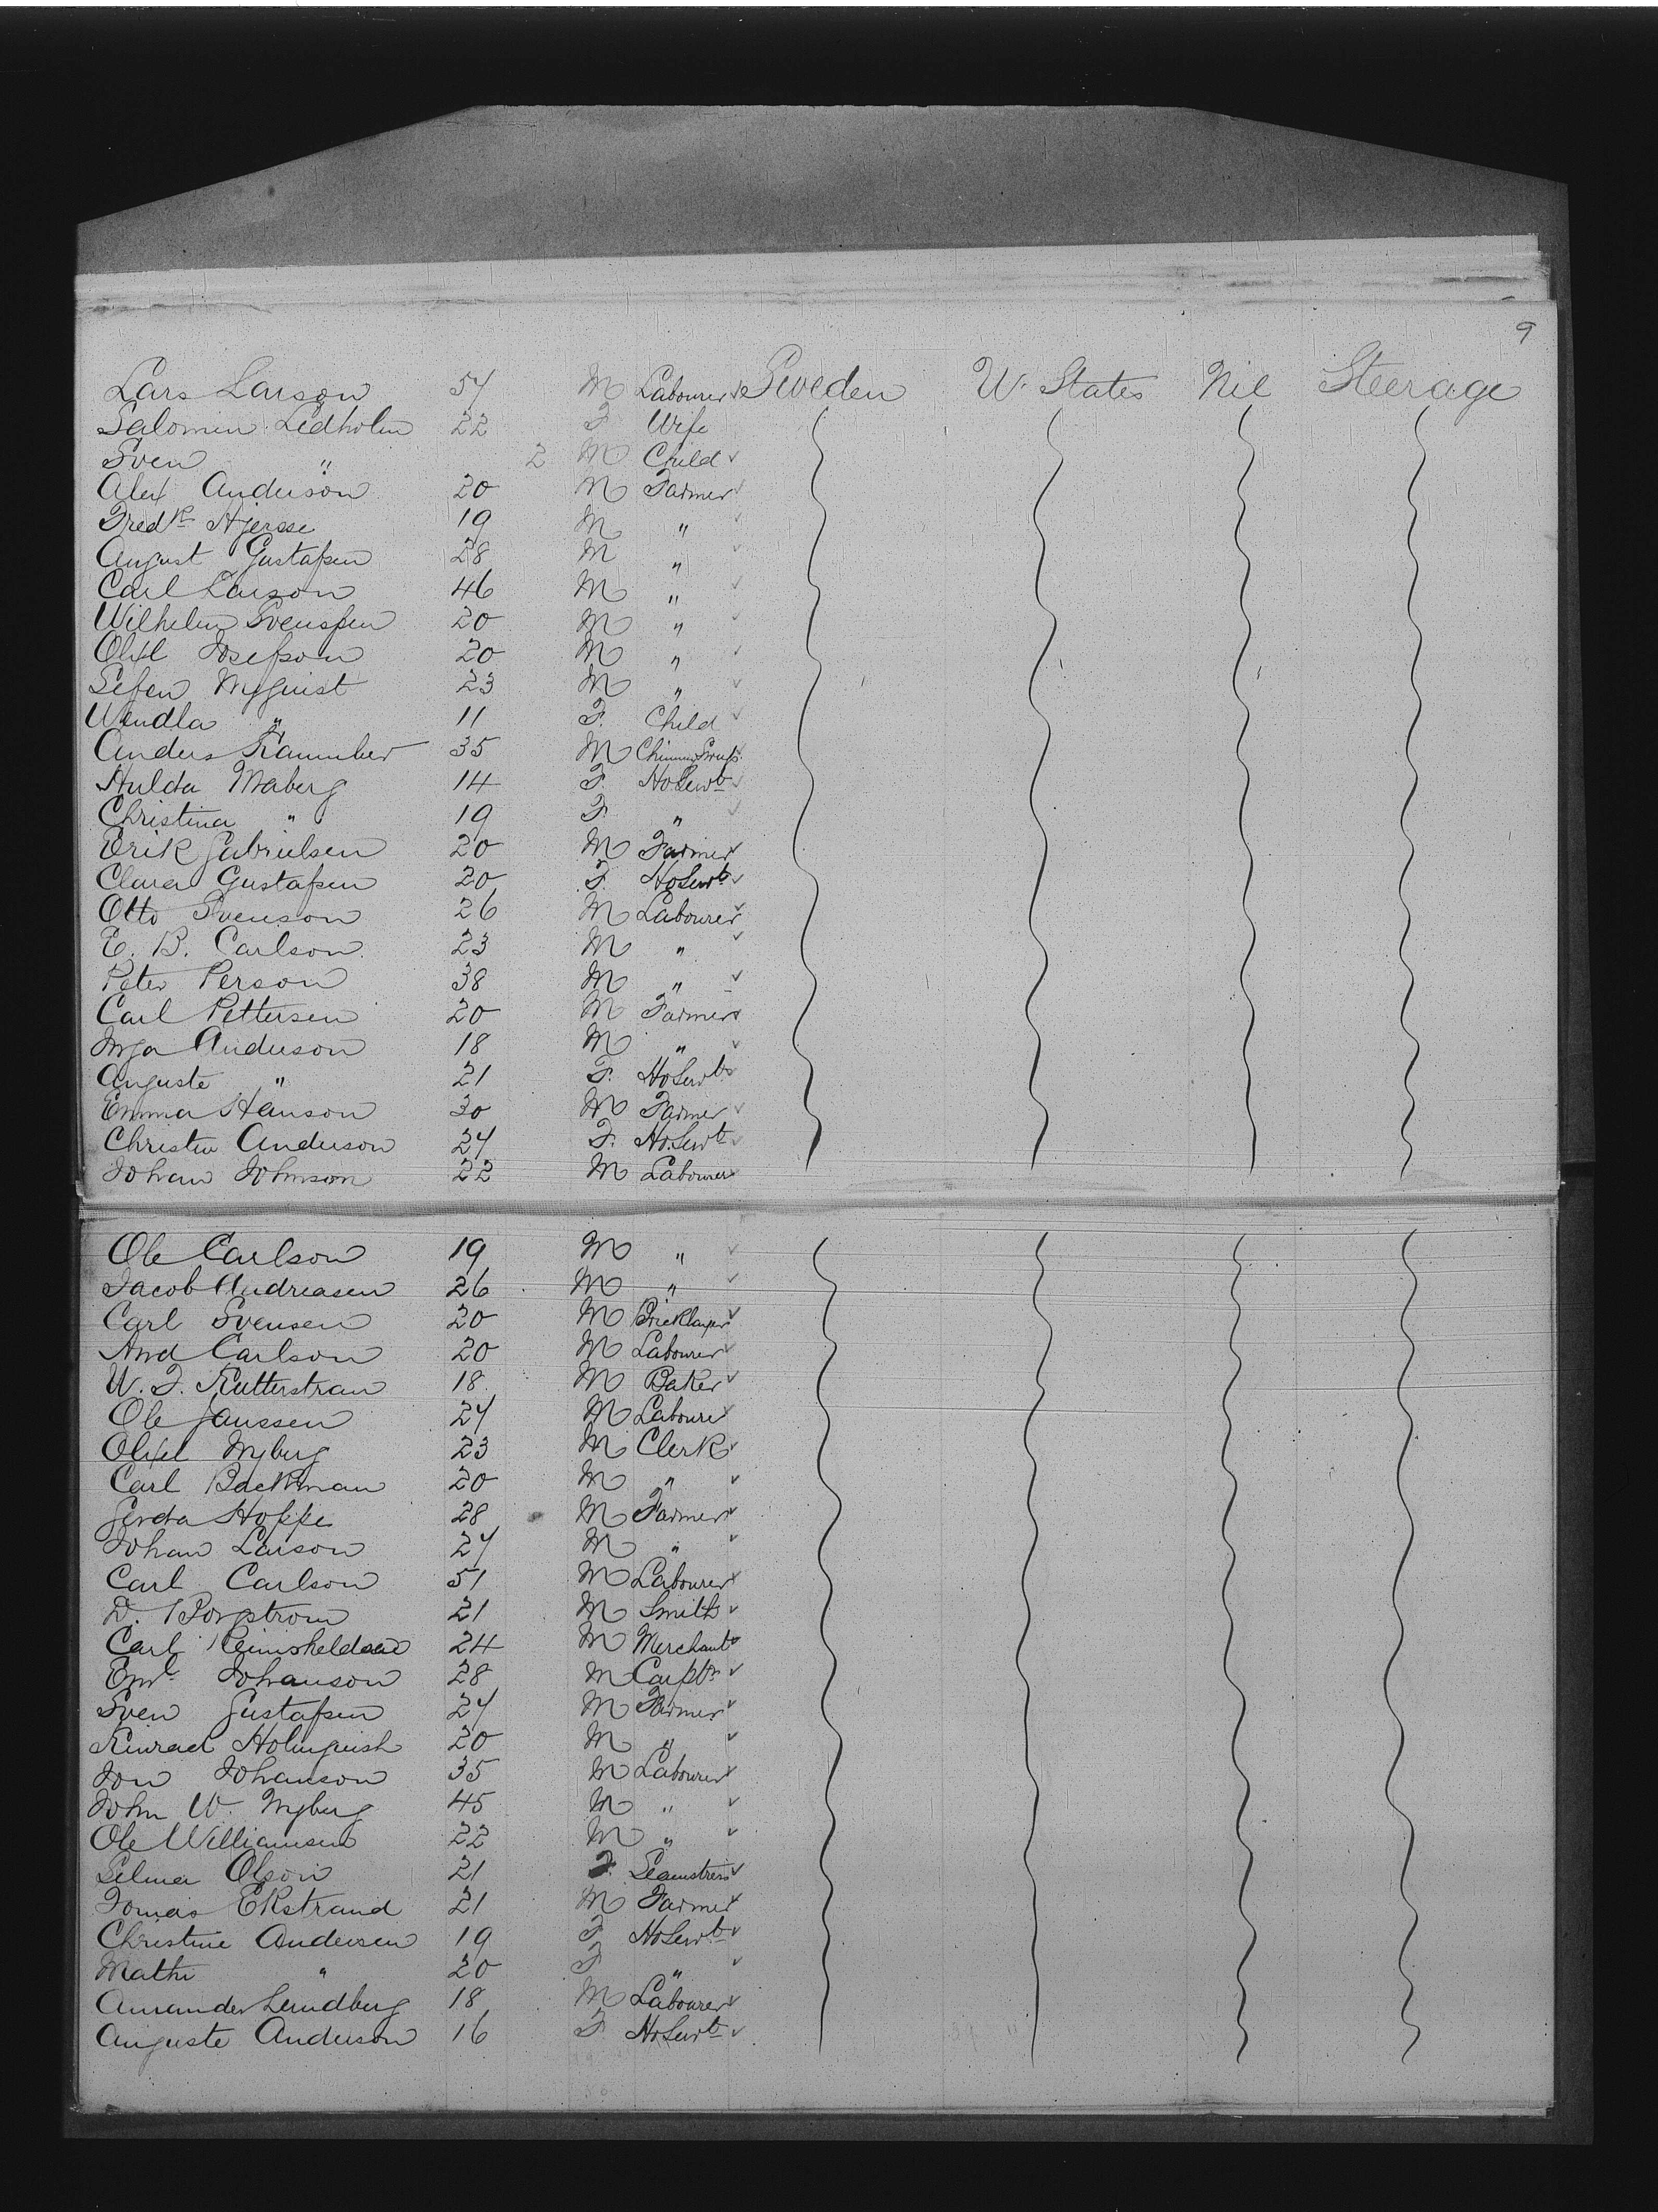 9
Lars Larson 54 M Labourer Sweden U. States Nil Steerage
Salomin Ledholm 22 F Wife
Sven " 2 M Child
Alex Anderson 20 M Farmer
Fredk 19 M "
August Gustafsen 28 M "
Carl Larson 46 M "
Wilhelm Svenssen 20 M "
Josefson 20 M "
Nyquist 23 M "
Wendla " 11 F. Child
Anders 35 M
Hulda Moberg 14 F. HoServt
Christina " 19 F. "
Erik Gabrielsen 20 M Farmer
Clara Gustafsen 20 F. HoServt
Otto Svenson 26 M Labourer
E. B. Carlson 23 M "
Peter Person 38 M "
Carl Pettersen 20 M Farmer
Inga Anderson 18 M "
Auguste " 21 F. HoServt
Emma Hanson 30 M Farmer
Christin Anderson 24 F. HoServt
Johan Johnson 22 M Labourer
Ole Carlson 19 M "
Jacob Andreasen 26 M "
Carl Svensen 20 M Bricklayer
And Carlson 20 M Labourer
W. F. 18 M Baker
Ole Janssen 24 M Labourer
Nyberg 23 M Clerk
Carl Backman 20 M "
Gerda Hoppe 28 M Farmer
Johan Larson 24 M "
Carl Carlson 51 M Labourer
D. Borgstrom 21 M Smith
Carl 24 M Merchant
Eml Johanson 28 M Carptr
Sven Gustafsen 24 M Farmer
Holmquish 20 M "
Jon Johanson 35 M Labourer
John W. Nyberg 45 M "
Ole Williamsen 22 M "
Selma Olson 21 F. Seamstress
Tomas Ekstrand 21 M Farmer
Christine Andersen 19 F HoServt
Mathi " 20 F "
Amander Lundberg 18 M Labourer
Auguste Anderson 16 F HoServt